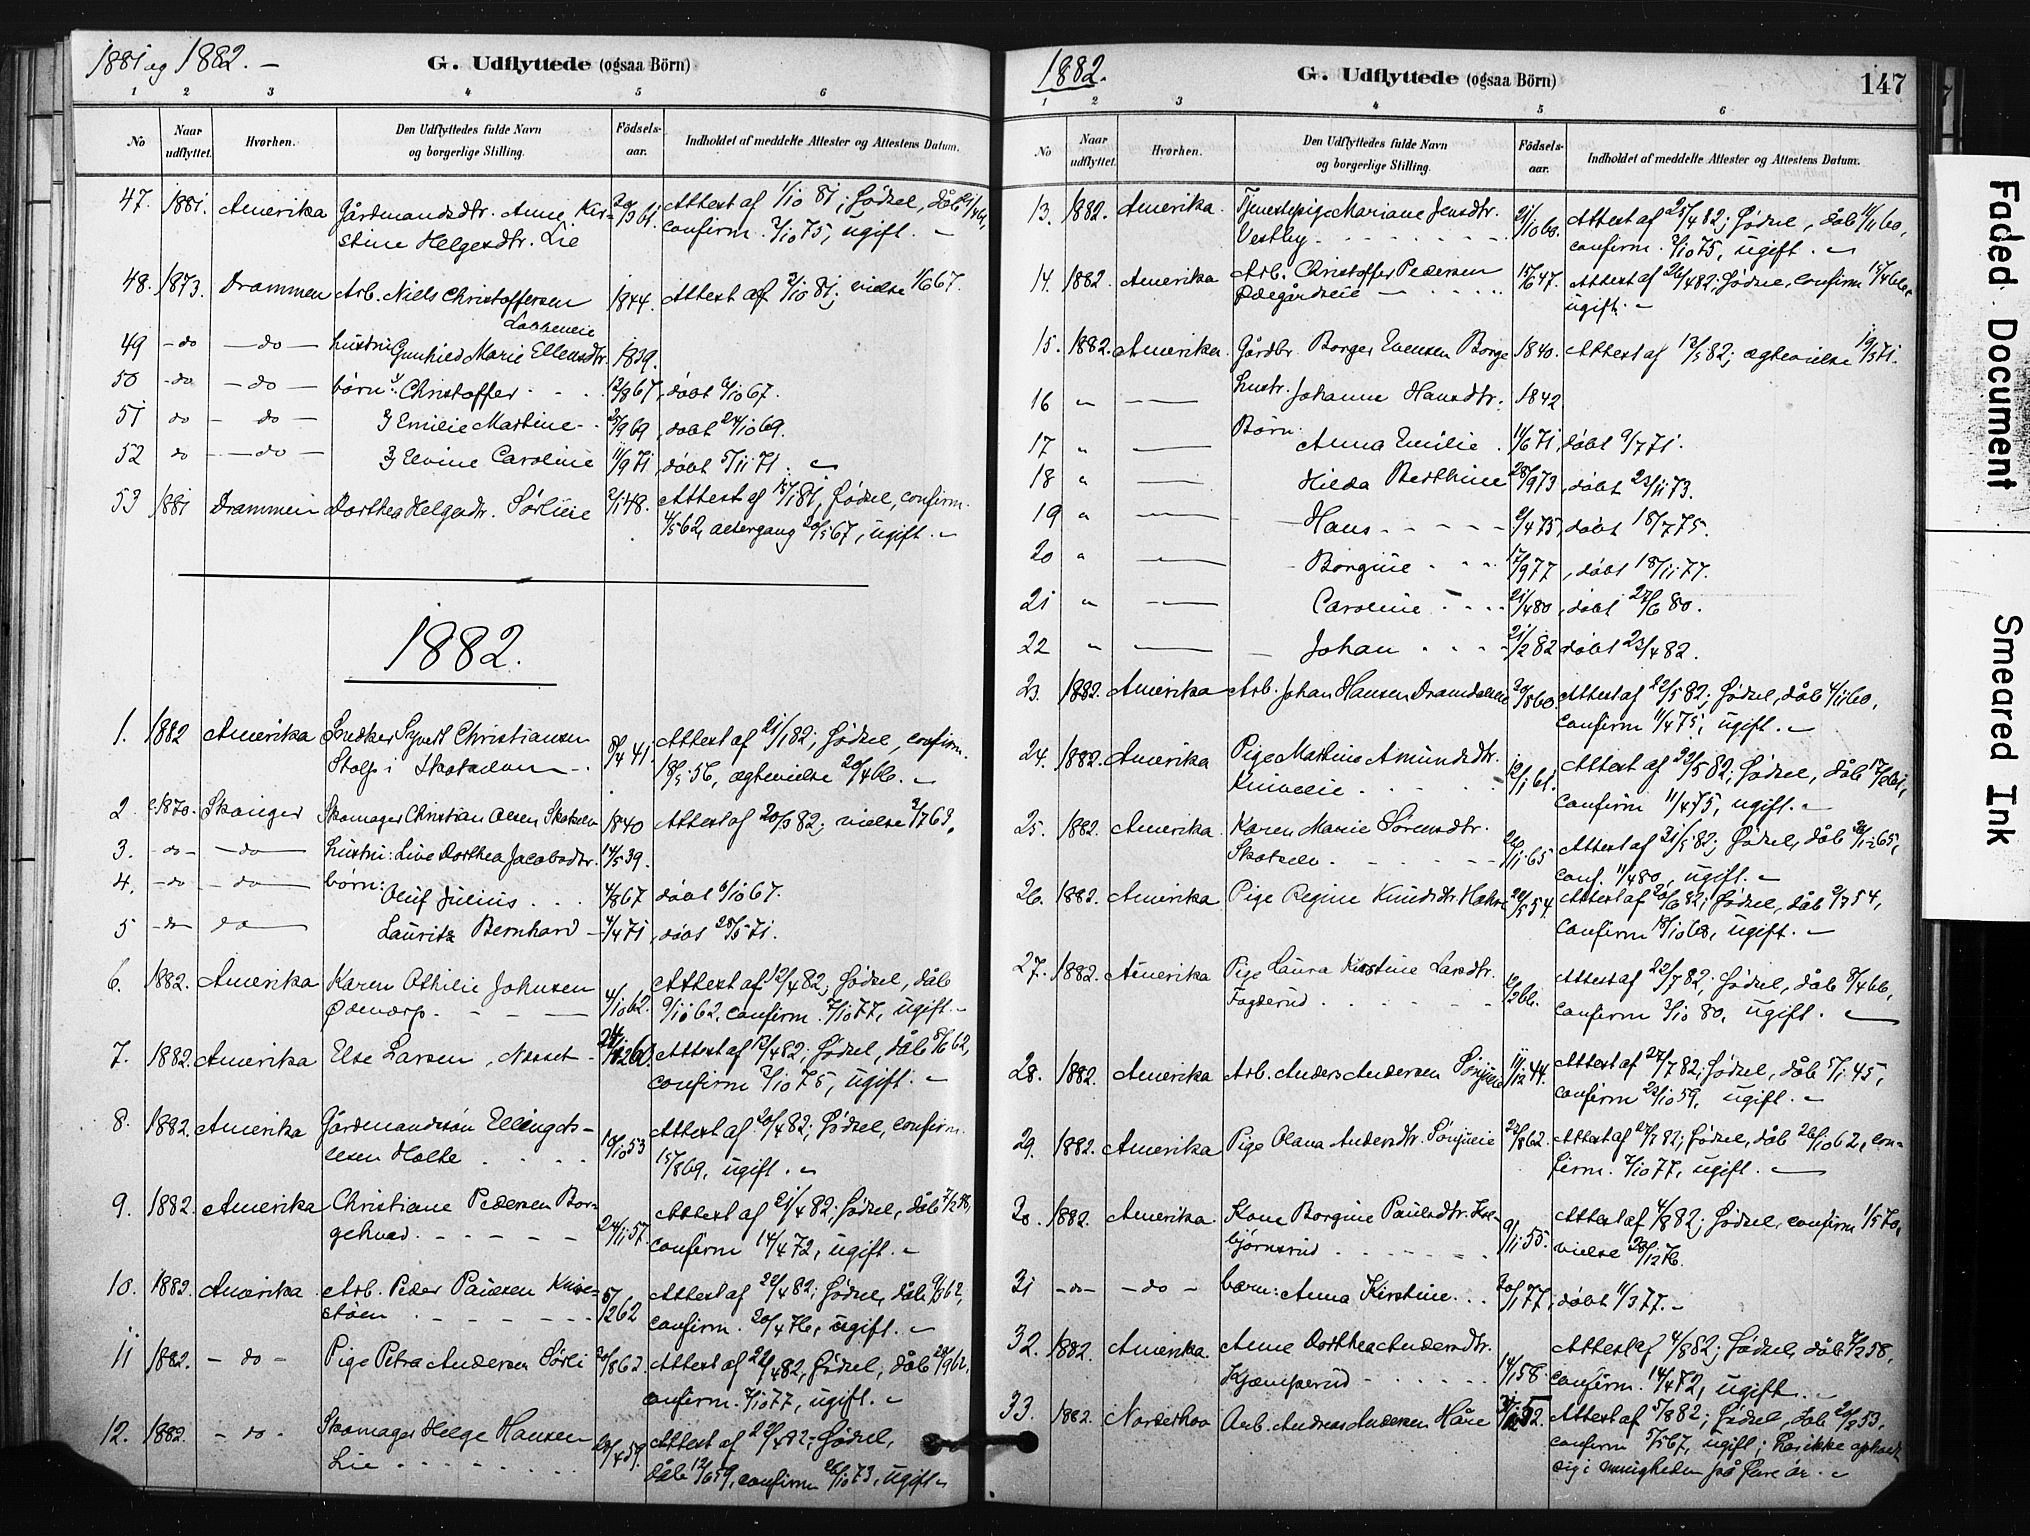 1881 og 1882. –
G. Udflyttede (ogsaa Börn)
1 2 3 4 5 6
No
Naar udflyttet.
Hvorhen.
Den Udflyttedes fulde Navn og borgerlige Stilling.
Födsels-aar.
Indholdet af meddelte Attester og Attestens Datum.
47. 1881. Amerika Gårdmandsdtr. Anne Kir-
stine Helgesdtr. Lie confirm. 3/10 75, ugift. –
48. 1873. Drammen Arb. Niels Christoffersen 1844. Attest af 3/10 81; vielse 1/6 67.
49 – do – do – hustru Gunhild Marie Ellensdtr. 1839.
50 – do – do – børn: Christoffer 12/8 67, døbt 6/10 67.
51 do – do – Emilie Martine 25/9 69, døbt 24/10 69.
52 do – do – Elvine Caroline 11/9 71, døbt 5/11 71.
53 1881 Drammen Dorthea Helgesdtr. Sørlie 2/1 48. Attest af 15/1 81, fødsel, confirm.
4/5 62, altergang 20/5 67, ugift. –
1882.
1. 1882 Amerika Snedker Syvert Christiansen 8/4 41. Attest af 21/1 82; fødsel, confirm.
Stolp i Skotselven 18/5 56, ægtevielse 20/4 66. –
2 1870. Skouger Skomager Christian Olsen Skotselv 1840 Attest af 20/3 82; vielse 2/7 63.
3. – do – do – hustru: Live Dorthea Jacobsdtr. 14/5 39.
4. – do – do – børn: Oluf Julius 4/8 67 døbt 6/10 67.
5 – do do Lauritz Bernhard 4/4 71, døbt 28/5 71.
6. 1882. Amerika Karen Othilie Johnsen 4/10 62. Attest af 12/4 82; fødsel, dåb
9/11 62, confirm. 7/10 77, ugift. –
7. 1882. Amerika Else Larsen, Næset Attest af 12/4 82; fødsel, dåb 8/6 62,
confirm 3/10 75, ugift. –
8. 1882. Amerika Gårdmandssøn Elling Ols- 10/10 53 Attest af 20/4 82; fødsel, confirm.
esen Holte 15/8 69, ugift. –
9. 1882. Amerika Christiane Pedersen Bor- 24/11 57. Attest af 21/4 82; fødsel, dåb 7/2 58,
gehvad confirm 14/4 72, ugift. –
10. 1882. Amerika Arb. Peder Paulsen Knive- 5/2 62 Attest af 22/4 82; fødsel, dåb 9/3 62,
støen confirm. 30/4 76, ugift. –
11 1882. – do – Pige Petra Andersen Sørli 20/8 62 Attest af 22/4 82, fødsel, dåb 28/9 62,
confirm. 7/10 77, ugift. –
12. 1882. – do – Skomager Helge Hansen 20/4 59. Attest af 22/4 82; fødsel,
Lie dåb 12/6 59, confirm 26/10 73, ugift –
1882.
G. Udflyttede (ogsaa Börn)
147
1 2 3 4 5 6
No
Naar udflyttet.
Hvorhen.
Den Udflyttedes fulde Navn og borgerlige Stilling.
Födsels-aar.
Indholdet af meddelte Attester og Attestens Datum.
13. 1882. Amerika. Tjenestepige Mariane Jensdtr. 21/10 60. Attest af 25/4 82; fødsel, dåb 11/11 60,
Vestby confirm. 3/10 75, ugift. –
14. 1882. Amerika Arb. Christoffer Pedersen 15/6 47. Attest af 26/4 82; fødsel, confirm
Ødegårdseie ugift. –
15. 1882. Amerika. Gårdbr. Borger Evensen Borge 1840. Attest af 12/5 82; ægtevielse 19/5 71.
16 „ — hustr. Johanne Hansdtr. 1842
17 „ — Børn: Anna Emilie 11/6 71, døbt 9/7 71.
18 „ — Hilda Berthine 28/9 73, døbt 23/11 73.
19 „ — Hans 2/4 75, døbt 18/7 75.
20 „ — Borgine 17/9 77, døbt 18/11 77.
21 „ — Caroline 21/4 80, døbt 27/6 80.
22 „ — Johan 21/2 82 døbt 23/4 82.
23. 1882. Amerika Arb. Johan Hansen 20/8 60. Attest af 22/5 82; fødsel, dåb 4/11 60,
confirm 11/4 75, ugift. –
24. 1882. Amerika Pige Mathine Amundsdtr. 12/1 61. Attest af 22/5 82; fødsel, dåb
Knivelie confirm 11/4 75, ugift. –
25. 1882. Amerika. Karen Marie Sørensdtr. Attest af 31/5 82; fødsel, dåb
Skotselv conf. 11/4 80, ugift. –
26. 1882. Amerika. Pige Regine Knudsdtr. 20/5 54. Attest af 20/6 82; fødsel, dåb 2/7 54,
confirm 18/10 68, ugift. –
27. 1882. Amerika Pige Laura Kirstine Larsdtr. 12/2 66. Attest af 22/7 82; fødsel, dåb 8/4 66,
Fagerud confirm 3/10 80, ugift. –
28. 1882. Amerika Arb. Anders Andersen 11/12 44. Attest af 27/7 82; fødsel, dåb 5/1 45,
confirm 23/10 59, ugift. –
29. 1882. Amerika Pige Olava Andersdtr. 23/8 62. Attest af 27/7 82; fødsel, dåb 26/10 62, con-
firm. 7/10 77, ugift. –
30. 1882. Amerika. Kone Borgine Paulsdtr. 9/11 55. Attest af 4/8 82; fødsel, confirm 1/5 70,
bjørnsrud vielse 28/12 76.
31 – do – – do – barn: Anna Kirstine 30/1 77, døbt 11/3 77. –
32. 1882. Amerika. Anne Dorthea Andersdtr. 14/1 58. Attest af 4/8 82; fødsel, dåb 7/2 58,
Kjæmperud confirm. 14/4 72, ugift. –
33. 1882. Norderhov Arb. Andreas Andersen Håre Attest af 5/8 82; fødsel, dåb 20/2 53,
confirm 5/5 67, ugift; har ikke opholdt
sig i menigheden på flere år. –
Faded Document
Smeared Ink